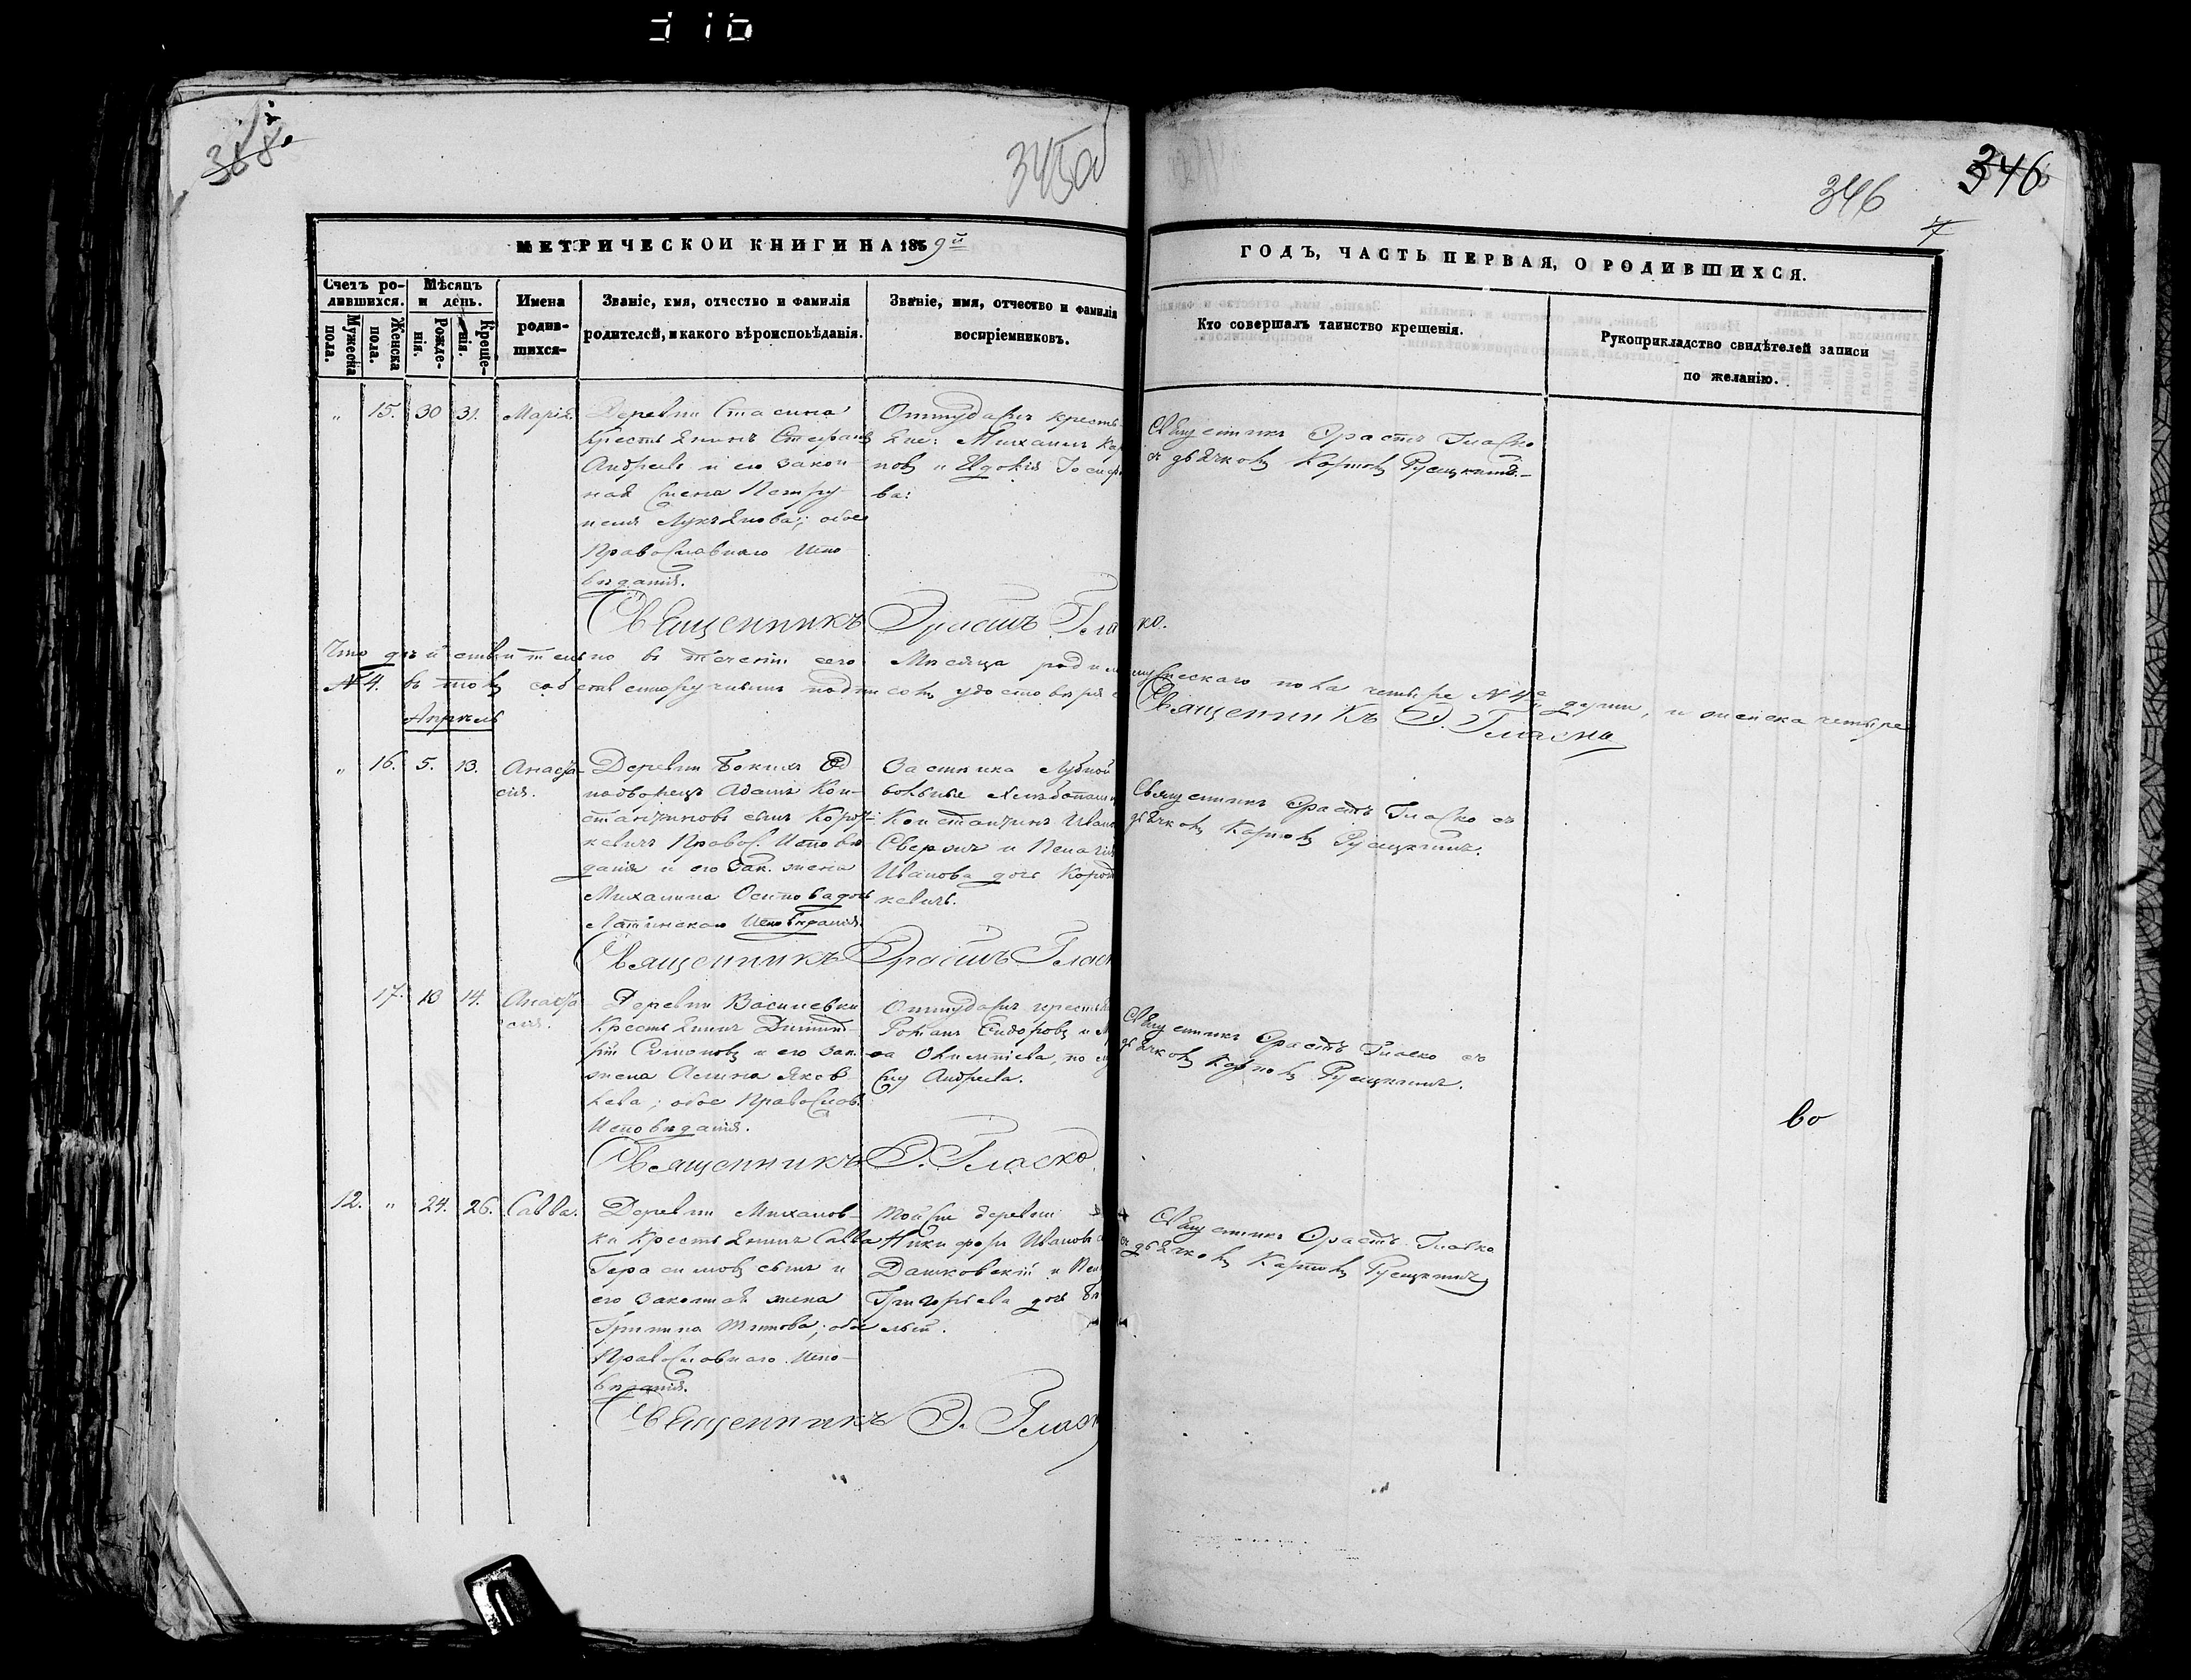 388
345об
346
346
7
МЕТРИЧЕСКОЙ КНИГИ НА 1859й
ГОДЪ, ЧАСТЬ ПЕРВАЯ, О РОДИВШИХСЯ.
Счетъ родившихся.
Мужеска пола.
Женска пола.
Мѣсяцъ и день.
Рожденія.
Крещенія.
Имена родившихся
Званіе, имя, отчество и фамилія
родителей, и какого вѣроисповѣданія.
Званіе, имя, отчество и фамилія
воспріемниковъ.
Кто совершалъ таинство крещенія.
Рукоприкладство свидѣтелей записи
по желанію.
„ 15. 30 31. Марія.
Деревни Стасина
Крестьянинъ Стефанъ
Андреевъ и его закон-
ная жена Петру-
неля Лукьянова; обое
Православнаго Испо
вѣданія.
Оттудажъ кресть-
яне: Михаилъ Кар
повъ и Іосифо
ва:
Священникъ Эрастъ Гласко
съ дьячкомъ Карпомъ Русецкимъ.-
Священникъ Эрастъ Гласко.
Что дѣйствительно въ теченіи сего Мѣсяца родил мужескаго пола четыре № 4е души, и женска четыре
№ 4. въ томъ собственноручнымъ подписомъ удостовѣряю Священникъ Э. Гласко
Апрѣль
„ 16. 5. 13. Анаста-
сія.
Деревни Бокшъ Од
нодворецъ Адамъ Кон-
стантиновъ сынъ Корот-
кевичъ Правос. Исповѣ-
данія и его Зак. жена
Михалина Осипова дочь
Латинскаго Исповѣданія.
Застѣнка Лубной
вольные хлѣбопашц
Константинъ Иван
и Пелагія
Иванова дочь Корот
кевичъ.
Священникъ Эрастъ Гласко съ
дьячкомъ Карпомъ Русецкимъ.
Священникъ Эрастъ Гласк
17. 13 14. Анаста
сія.
Деревни Василевки
Крестьянинъ Димит-
рій Симоновъ и его Зак.
жена Яков-
лева; обое Православ.
Исповѣданія.
Оттудажъ крестья
Романъ Сидоровъ и
по му
жу Андреева.
Священникъ Эрастъ Гласко съ
дьячкомъ Карпомъ Русецкимъ.
во
Священникъ Э. Гласко
12. „ 24. 26. Савва.
Деревни Михалов-
ки Крестьянинъ Савва
Герасимовъ сынъ и
его законная жена
Титова; обое
Православнаго Испо-
вѣданія.
Той же деревни
Никифоръ Ивановъ
Дашковскій и
Григорьева дочь
Священникъ Эрастъ Гласко
съ дьячкомъ Карпомъ Русецкимъ
Священникъ Э. Гласк